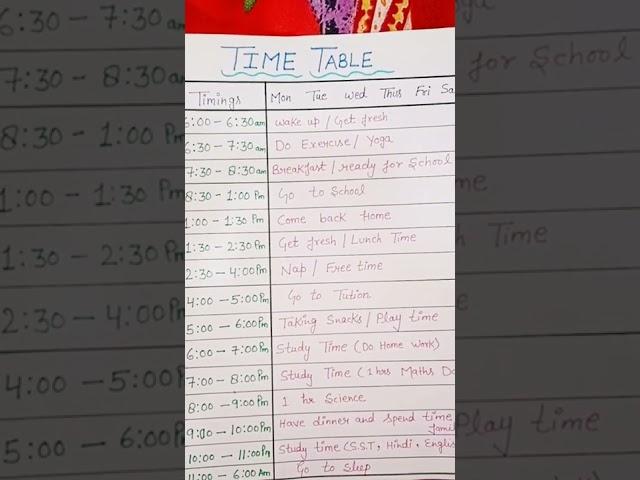 TIME TABLE
Timings Mon Tue Wed Thus Fri Sa
6:00 - 6:30 am Wake up / Get fresh
6:30 - 7:30 am Do Exercise / Yoga
7:30 - 8:30 am Breakfast / ready for School
8:30 - 1:00 Pm Go to School
1:00 - 1:30 Pm Come back Home
1:30 - 2:30 Pm Get fresh / Lunch Time
2:30 - 4:00 Pm Nap / Free time
4:00 - 5:00 Pm Go to Tution
5:00 - 6:00 Pm Taking Snacks / Play time
6:00 - 7:00 Pm Study Time (Do Home Work)
7:00 - 8:00 Pm Study Time (1 hrs Maths Do
8:00 - 9:00 Pm 1 hr Science
9:00 - 10:00 Pm Have dinner and spend time
famil
10:00 - 11:00 Pm Study time (S.S.T, Hindi, Englis
11:00 - 6:00 Am Go to Sleep
6:30 - 7:30 am
7:30 - 8:30 am for School
8:30 - 1:00 Pm
1:00 - 1:30 Pm me
1:30 - 2:30 Pm Time
2:30 - 4:00 Pm
4:00 - 5:00 Pm
5:00 - 6:00 Pm Play time